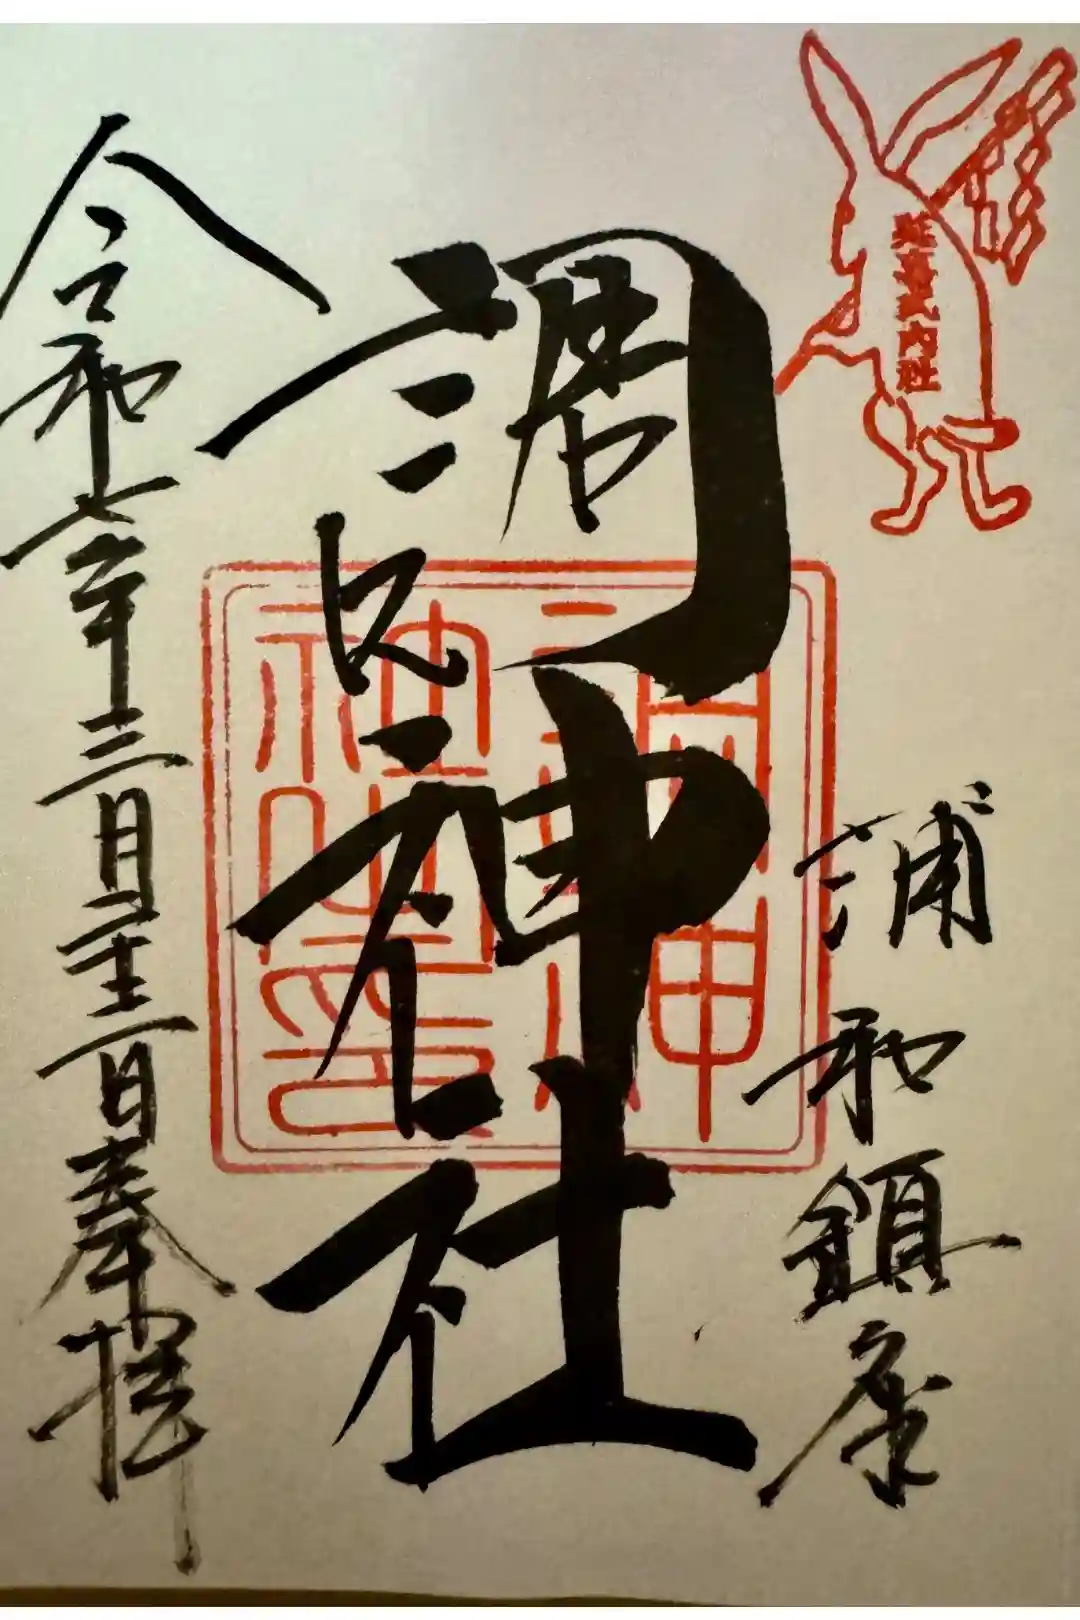 延喜式内社
浦和鎮座
調神社
調神
社之印
令和七年三月二十二日奉拝